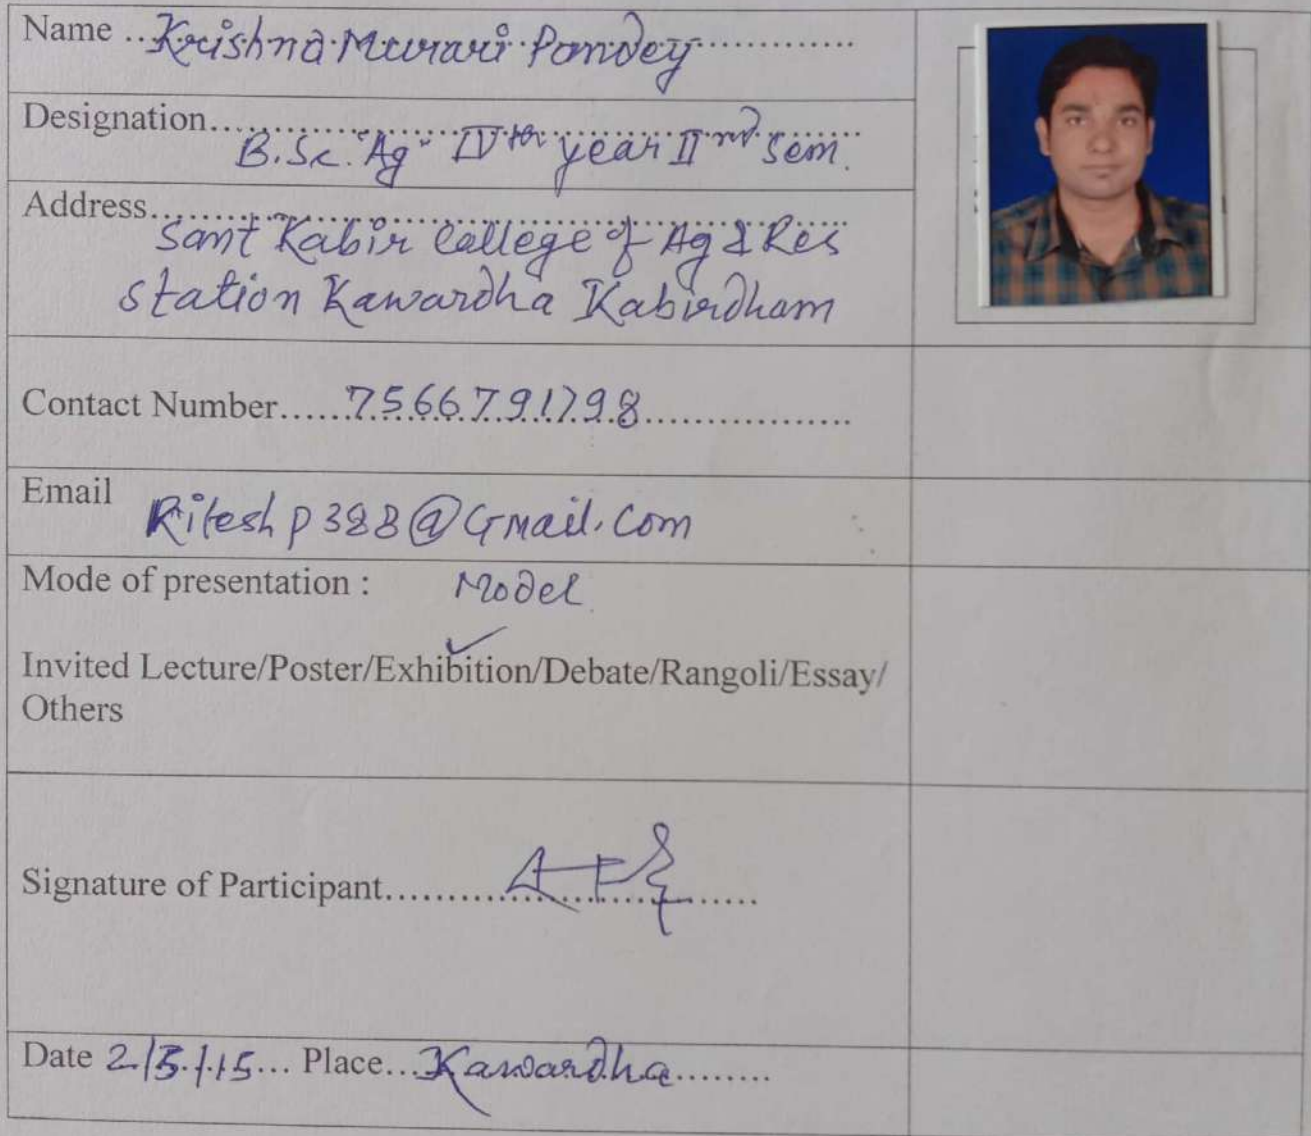 Name .. Krishna Murari Pandey
Designation....
B.Sc. Ag. IVth year IInd sem.
Address....
Sant Kabir College of Ag & Res
station Kawardha Kabirdham
Contact Number...... 7566791798
Email
Riteshp388@Gmail.com
Mode of presentation : Model
Invited Lecture/Poster/Exhibition/Debate/Rangoli/Essay/
Others
Signature of Participant........
Date 2/5/15... Place... Kawardha........